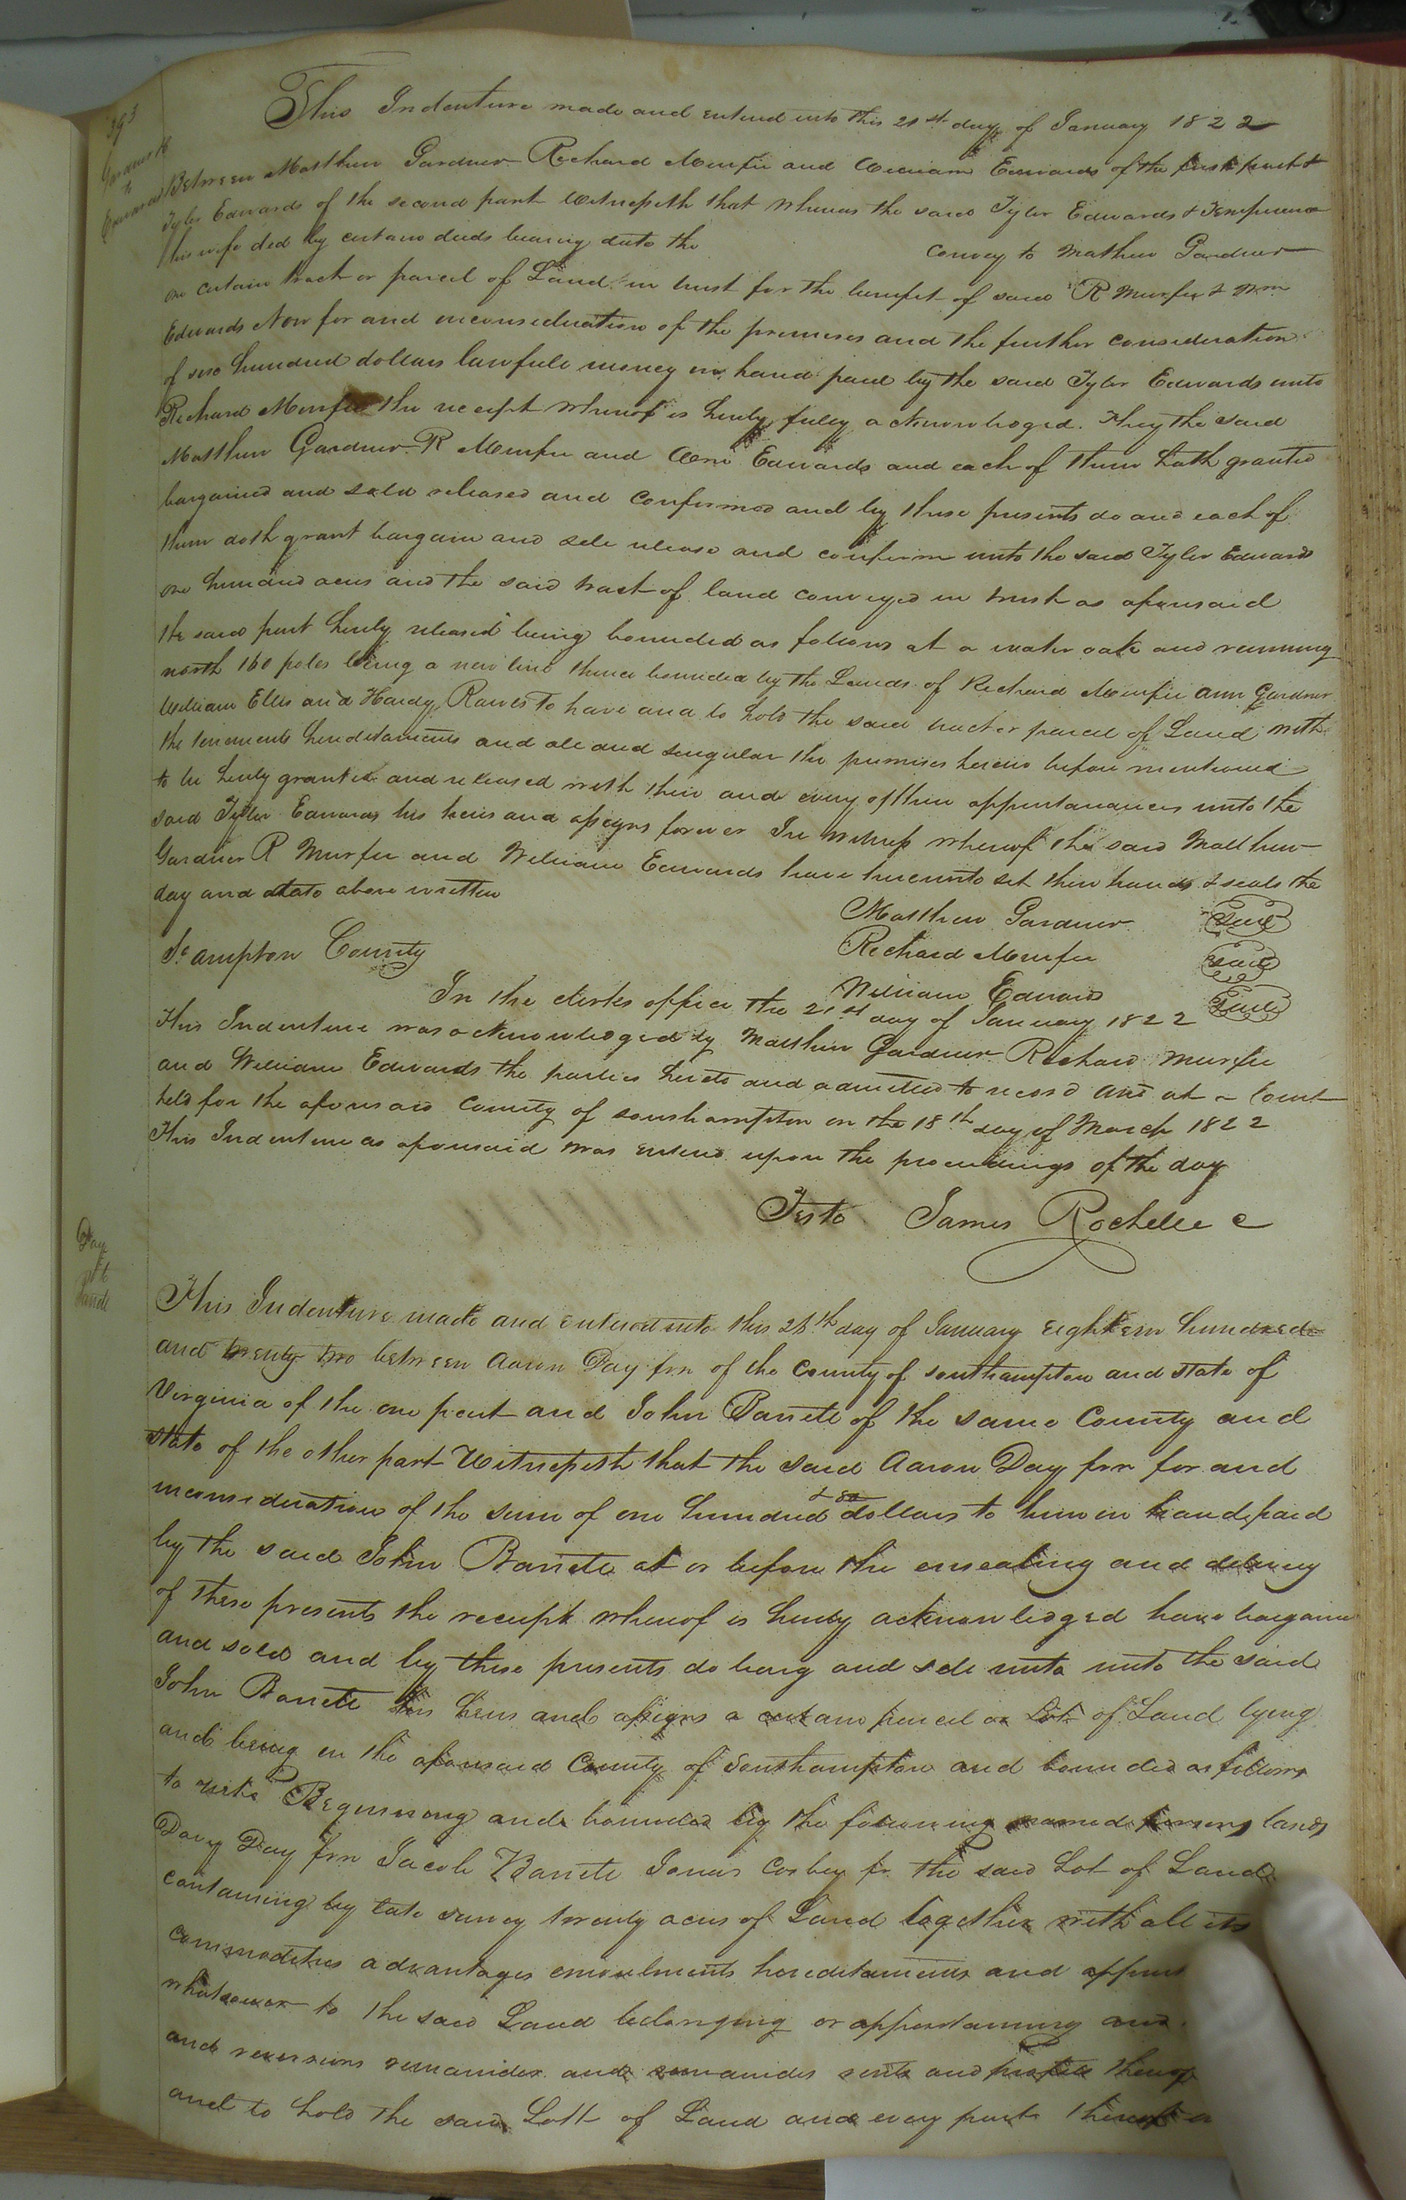 393
Gardner &c
to
Edwards
This Indenture made and entered into this 21st day of January 1822
Between Matthew Gardner Richard Murfee and William Edwards of the first part &
Tyler Edwards of the second part Witnesseth that whereas the said Tyler Edwards & Temperence
his wife did by certain deeds bearing date the convey to Mathew Gardner
one certain tract or parcel of Land in trust for the benefit of said R Murfee & Wm
Edwards Now for and inconsideration of the premises and the further consideration
of hundred dollars lawfull money in hand paid by the said Tyler Edwards unto
Richard Murfee the receipt whereof is hereby fully acknowledged. They the said
Matthew Gardner R Murfee and Wm Edwards and each of them hath granted
bargained and sold released and confirmed and by these presents do and each of
them doth grant bargain and sell release and confirm unto the said Tyler Edwards
one hundred acres and the said tract of land conveyed in trust as aforesaid
the said part hereby released being bounded as follows at a water oak and running
north 160 poles being a new line thence bounded by the Lands of Richard Murfee Ann Gardner
William Ellis and Hardy Rawls to have and to hold the said tract or parcel of Land with
the tenements hereditaments and all and singular the premises herein before mentioned
to be hereby granted and released with their and every of their appurtanances unto the
said Tyler Edwards his heirs and assigns forever In witness whereof the said Matthew
Gardner R Murfee and William Edwards have hereunto set their hands & seals the
day and date above written
Matthew Gardner Seal
Richard Murfee Seal
William Edwards Seal
So ampton County
In the clerks office the 21st day of January 1822
This Indenture was acknowledged by Matthew Gardner Richard Murfee
and William Edwards the parties hereto and admitted to record and at a Court
held for the aforesaid County of Southampton on the 18th day of March 1822
This Indenture as aforesaid was entered upon the proceedings of the day
Teste James Rochelle C
Day
to
This Indenture made and entered into this 28th day of January Eighteen hundred
and twenty two between Aaron Day Jnr of the County of Southampton and state of
Virginia of the one part and John Barrett of the same County and
state of the other part Witnesseth that the said Aaron Day Jnr for and
inconsideration of the sum of one hundred & 80 dollars to him in hand paid
by the said John Barrett at or before the ensealing and delivery
of these presents the receipt whereof is hereby acknowledged have bargaine
and sold and by these presents do barg and sell unto unto the said
John Barrett his heirs and assigns a certain parcel or Lot of Land lying
and being in the aforesaid County of Southampton and bounded as follows
to wit Beginning and bounded by the following named persons lands
Davy Day Jnr Jacob Barrett James Cosby Jr the said Lot of Land
containing by late survey twenty acres of Land together with all its
commodities advantages emoulments hereditaments and appurt
whatsoever to the said Land belonging or appertaining and
and reversions remainder and remainders rents and profits thereof
and to hold the said Lott of Land and every part thereof